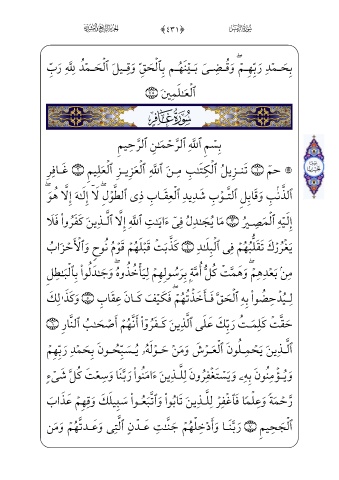 سُورَةُ الزُّمَرِ ﴿٤٣١﴾ الجُزْءُ الرَّابِعُ وَالعِشْرُونَ
بِحَمۡدِ رَبِّهِمۡۖ وَقُضِيَ بَيۡنَهُم بِٱلۡحَقِّ وَقِيلَ ٱلۡحَمۡدُ لِلَّهِ رَبِّ
ٱلۡعَٰلَمِينَ ۝٧٥
سُورَةُ غَافِرٍ
بِسۡمِ ٱللَّهِ ٱلرَّحۡمَٰنِ ٱلرَّحِيمِ
۞ حمٓ ۝١ تَنزِيلُ ٱلۡكِتَٰبِ مِنَ ٱللَّهِ ٱلۡعَزِيزِ ٱلۡعَلِيمِ ۝٢ غَافِرِ
ٱلذَّنۢبِ وَقَابِلِ ٱلتَّوۡبِ شَدِيدِ ٱلۡعِقَابِ ذِي ٱلطَّوۡلِۖ لَآ إِلَٰهَ إِلَّا هُوَۖ
إِلَيۡهِ ٱلۡمَصِيرُ ۝٣ مَا يُجَٰدِلُ فِيٓ ءَايَٰتِ ٱللَّهِ إِلَّا ٱلَّذِينَ كَفَرُواْ فَلَا
يَغۡرُرۡكَ تَقَلُّبُهُمۡ فِي ٱلۡبِلَٰدِ ۝٤ كَذَّبَتۡ قَبۡلَهُمۡ قَوۡمُ نُوحٖ وَٱلۡأَحۡزَابُ
مِنۢ بَعۡدِهِمۡۖ وَهَمَّتۡ كُلُّ أُمَّةِۭ بِرَسُولِهِمۡ لِيَأۡخُذُوهُۖ وَجَٰدَلُواْ بِٱلۡبَٰطِلِ
لِيُدۡحِضُواْ بِهِ ٱلۡحَقَّ فَأَخَذۡتُهُمۡۖ فَكَيۡفَ كَانَ عِقَابِ ۝٥ وَكَذَٰلِكَ
حَقَّتۡ كَلِمَتُ رَبِّكَ عَلَى ٱلَّذِينَ كَفَرُوٓاْ أَنَّهُمۡ أَصۡحَٰبُ ٱلنَّارِ ۝٦
ٱلَّذِينَ يَحۡمِلُونَ ٱلۡعَرۡشَ وَمَنۡ حَوۡلَهُۥ يُسَبِّحُونَ بِحَمۡدِ رَبِّهِمۡ
وَيُؤۡمِنُونَ بِهِۦ وَيَسۡتَغۡفِرُونَ لِلَّذِينَ ءَامَنُواْۖ رَبَّنَا وَسِعۡتَ كُلَّ شَيۡءٖ
رَّحۡمَةٗ وَعِلۡمٗا فَٱغۡفِرۡ لِلَّذِينَ تَابُواْ وَٱتَّبَعُواْ سَبِيلَكَ وَقِهِمۡ عَذَابَ
ٱلۡجَحِيمِ ۝٧ رَبَّنَا وَأَدۡخِلۡهُمۡ جَنَّٰتِ عَدۡنٍ ٱلَّتِي وَعَدتَّهُمۡ وَمَن